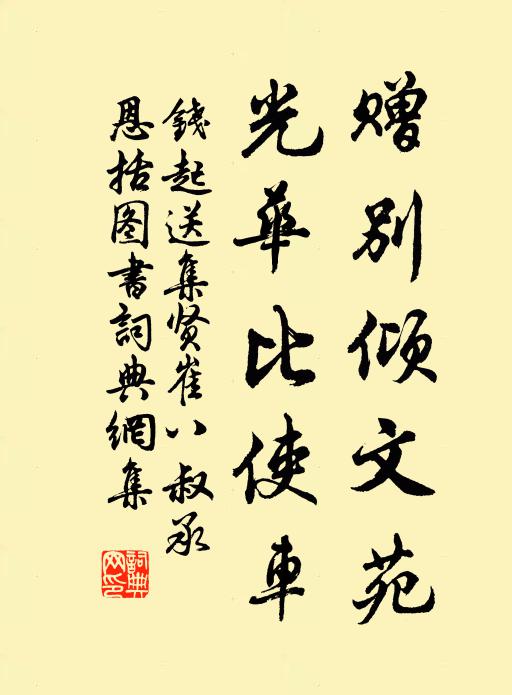 赠别倾文苑
光华比使车
钱起送集贤崔八叔承
恩括图书词典網集
詞典网印